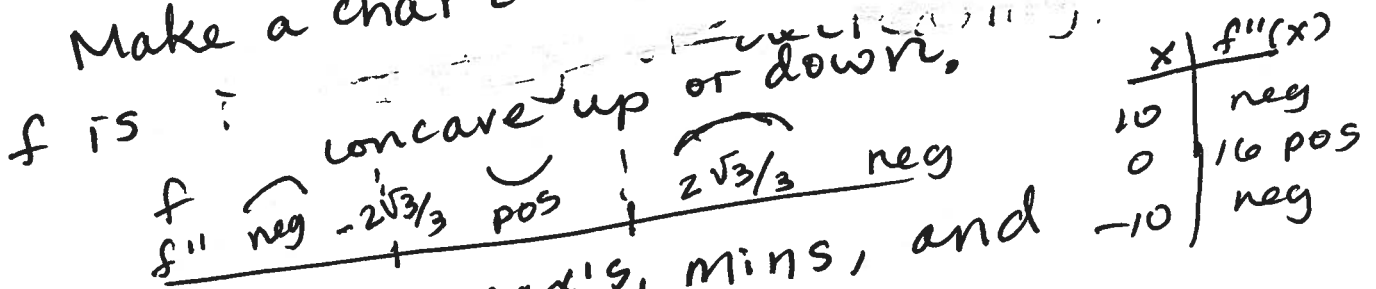 Make a
f is :
concave up or down.
f
f'' neg -2√3/3 pos 2√3/3 neg
mins, and
x | f''(x)
10 | neg
0 | 16 pos
-10 | neg